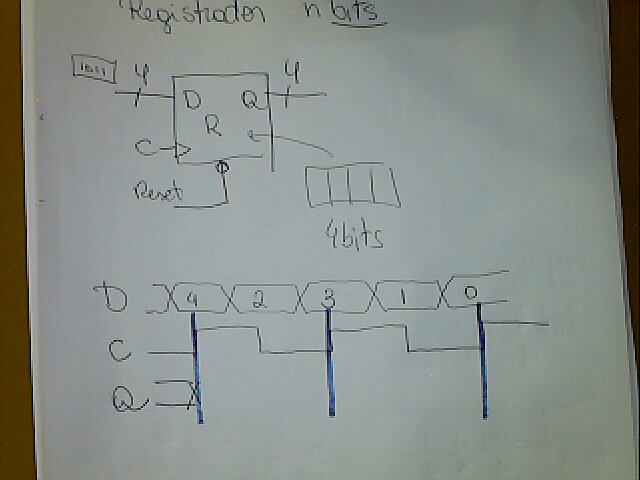 Registrador n bits
1011 4 4
D Q
R
C
Reset
4bits
D 4 2 3 1 0
C
Q